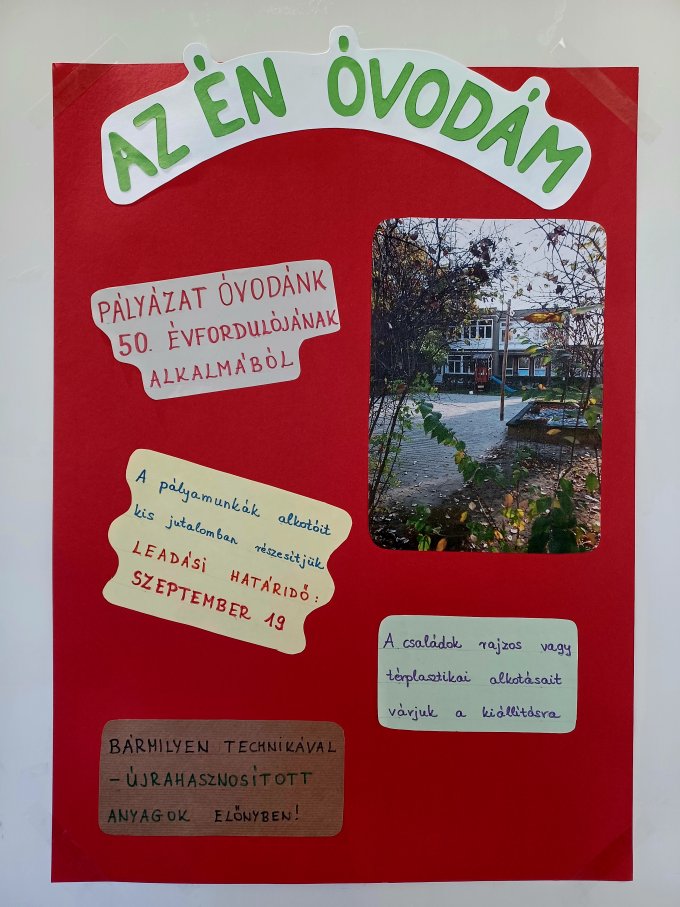 AZ ÉN ÓVODÁM
PÁLYÁZAT ÓVODÁNK
50. ÉVFORDULÓJÁNAK
ALKALMÁBÓL
A pályamunkák alkotóit
kis jutalomban részesítjük
LEADÁSI HATÁRIDŐ:
SZEPTEMBER 19
A családok rajzos vagy
térplasztikai alkotásait
várjuk a kiállításra
BÁRMILYEN TECHNIKÁVAL
- ÚJRAHASZNOSÍTOTT
ANYAGOK ELŐNYBEN!